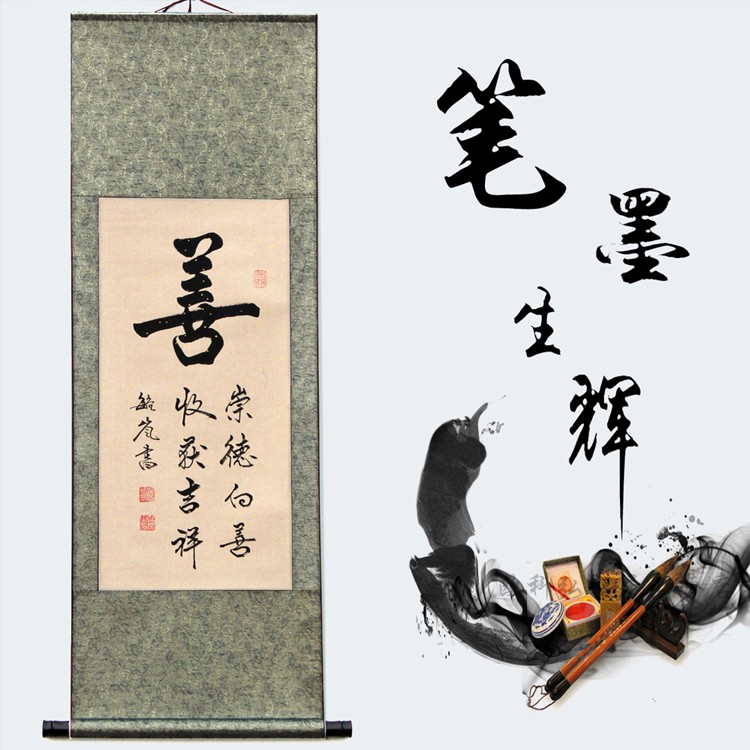 善
崇德向善
收获吉祥
毓岚书
笔墨生辉